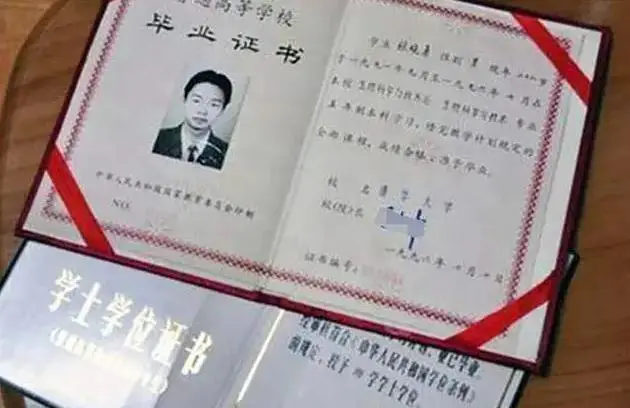 普通高等学校
毕业证书
中华人民共和国国家教育委员会印制
NO.
学生 性别 男 现年
于一九九一年九月至一九九六年七月在
本校 生物科学与技术系 生物科学与技术 专业
五年制本科学习，修完教学计划规定的
全部课程，成绩合格，准予毕业。
校 名 清华大学
校(院)长
一九九六年七月十日
证书编号：
学士学位证书
业已毕业。
经审核符合《中华人民共和国学位条例》
的规定，授予 理 学学士学位。